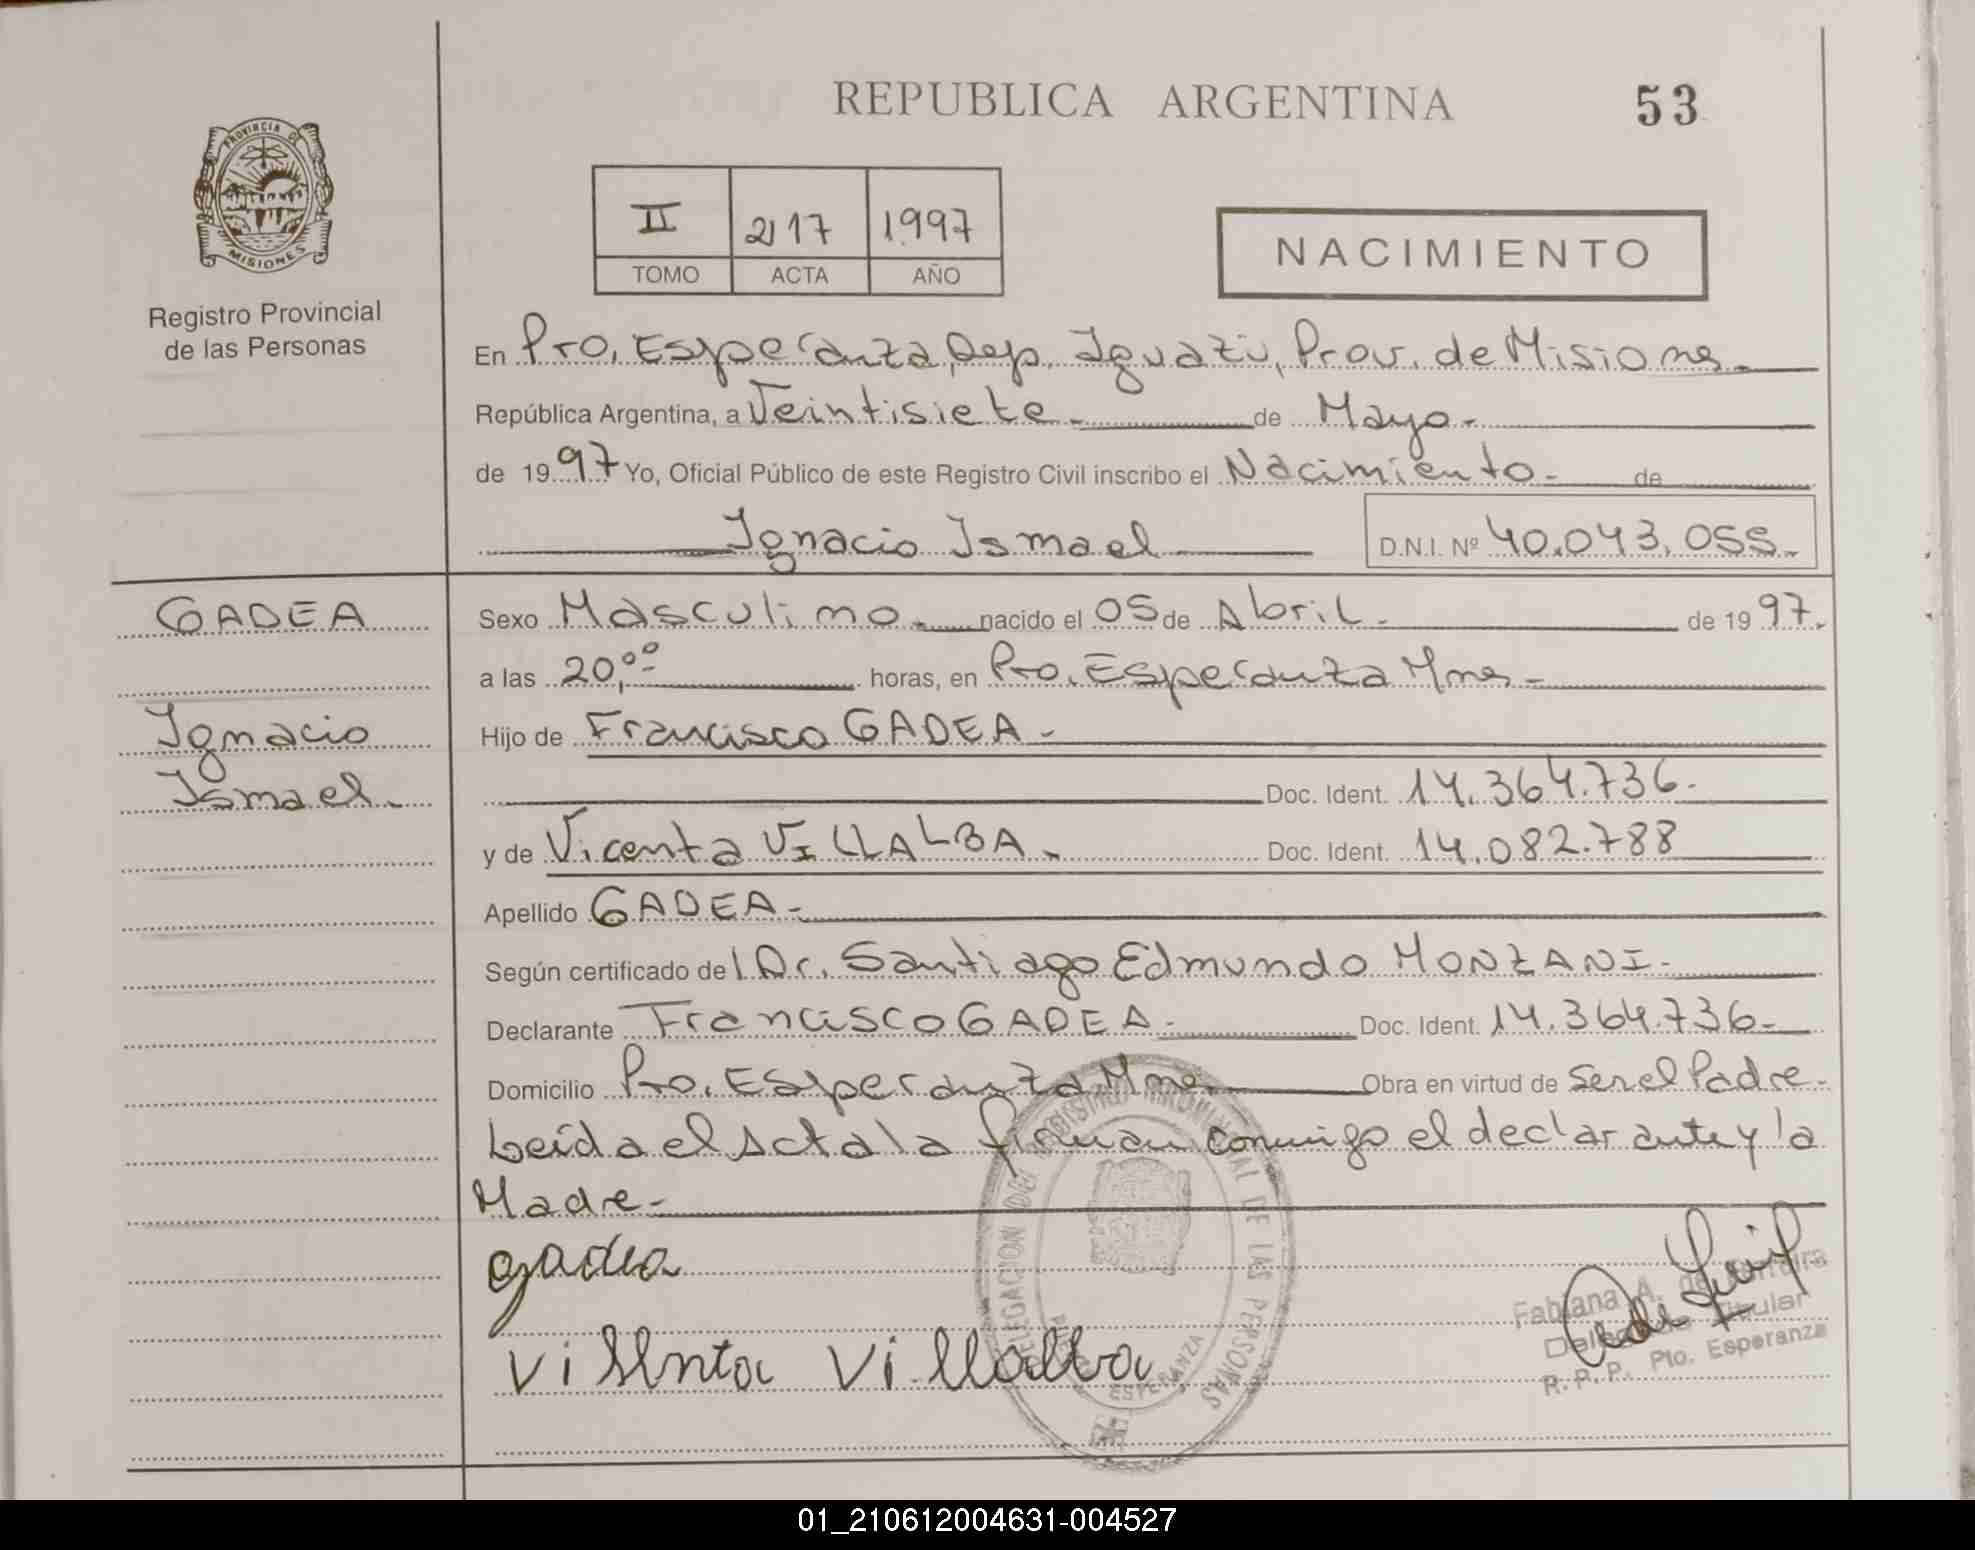 REPUBLICA ARGENTINA
53
PROVINCIA DE
MISIONES
Registro Provincial
de las Personas
II 217 1997
TOMO ACTA AÑO
NACIMIENTO
En Pto. Esperanza, Dep. Iguazú, Prov. de Misiones.
República Argentina, a Veintisiete. de Mayo.
de 1997 Yo, Oficial Público de este Registro Civil inscribo el Nacimiento. de
Ignacio Ismael D.N.I. Nº 40.043.055.
GADEA
Ignacio
Ismael.
Sexo Masculino. nacido el 05 de Abril. de 1997.
a las 20,00 horas, en Pto. Esperanza Mnes.
Hijo de Francisco GADEA.
Doc. Ident. 14.364.736.
y de Vicenta VILLALBA. Doc. Ident. 14.082.788
Apellido GADEA.
Según certificado de l Dr. Santiago Edmundo MONZANI.
Declarante Francisco GADEA. Doc. Ident. 14.364.736.
Domicilio Pto. Esperanza Mnes. Obra en virtud de Ser el Padre.
Leída el Acta la firman conmigo el declarante y la
Madre.
gadea
Visenta Villalba
DELEGACION DEL REGISTRO PROVINCIAL DE LAS PERSONAS
ESPERANZA
Fabiana A. de Ferreira
Delegada Titular
R. P. P. Pto. Esperanza
01_210612004631-004527